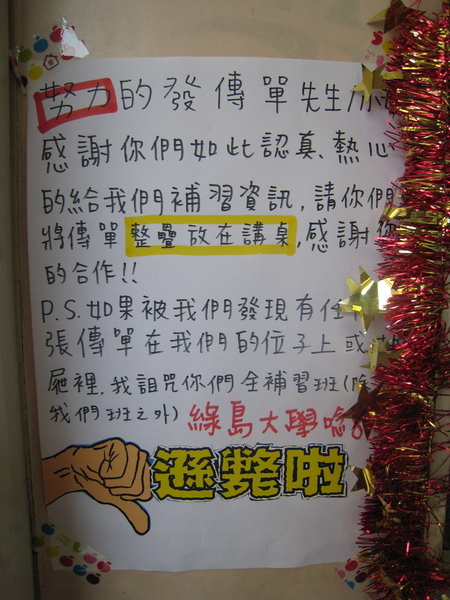 努力的發傳單先生小
感謝你們如此認真、熱心
的給我們補習資訊,請你們
將傳單整疊放在講桌,感謝你
的合作!!
P.S.如果被我們發現有任
張傳單在我們的位子上或
屜裡,我詛咒你們全補習班(除
我們班之外)綠島大學唸
遜斃啦